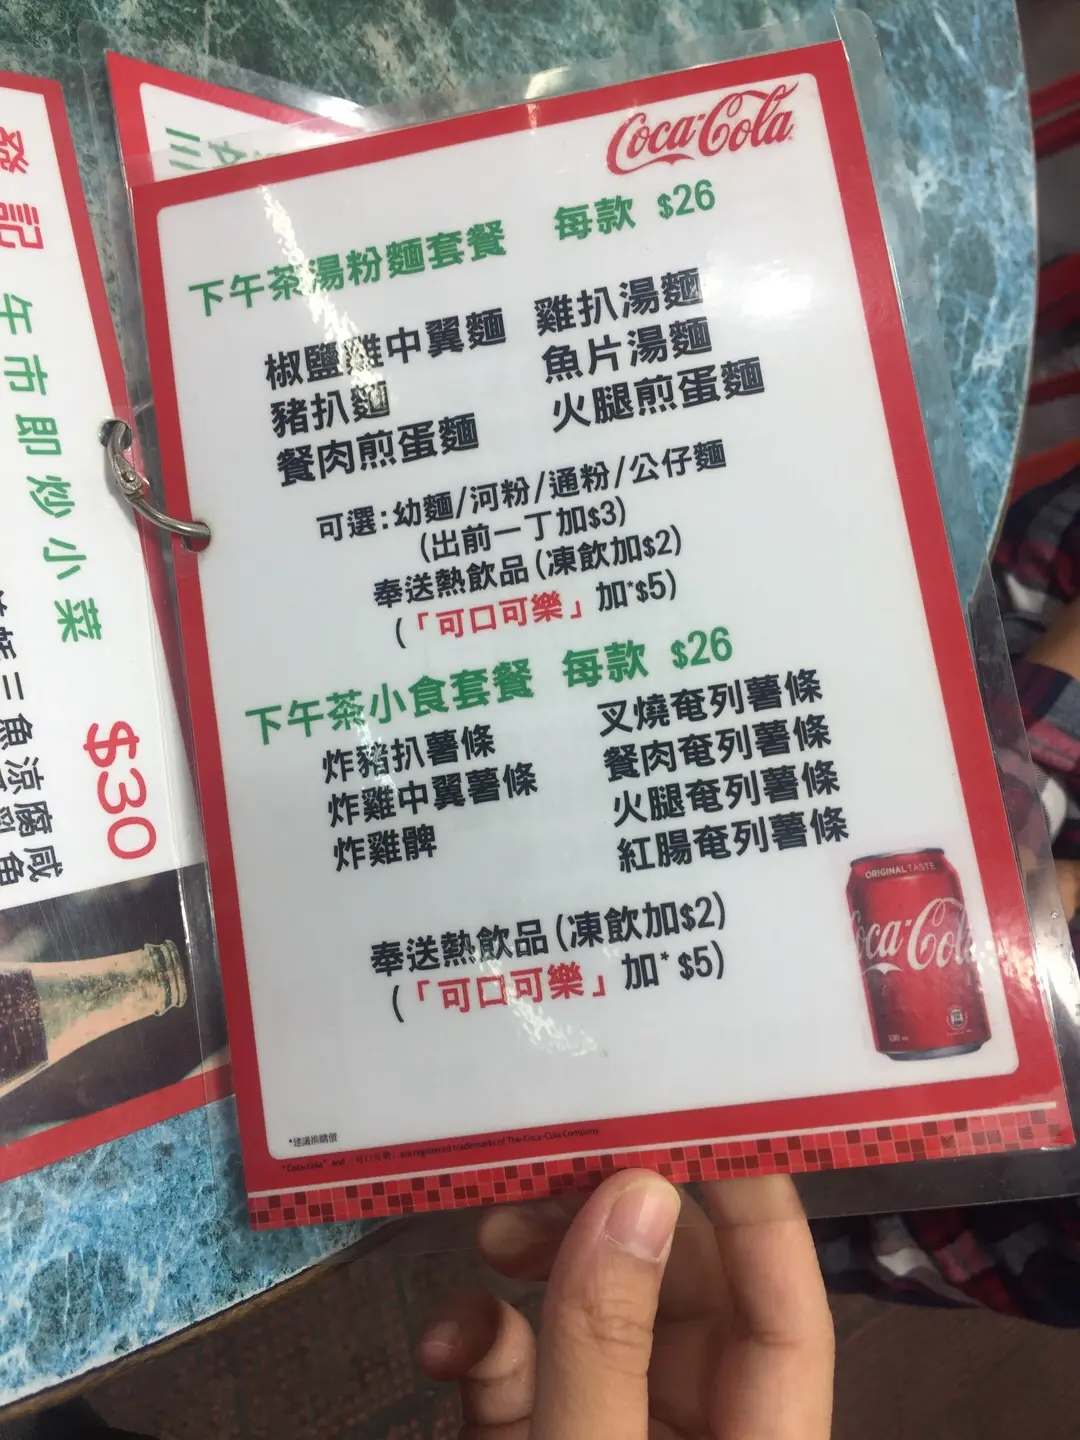 發記 午市即炒小菜 $30
Coca-Cola
下午茶湯粉麵套餐 每款 $26
椒鹽雞中翼麵 雞扒湯麵
豬扒麵 魚片湯麵
餐肉煎蛋麵 火腿煎蛋麵
可選:幼麵/河粉/通粉/公仔麵
(出前一丁加$3)
奉送熱飲品(凍飲加$2)
(「可口可樂」加*$5)
下午茶小食套餐 每款 $26
炸豬扒薯條 叉燒奄列薯條
炸雞中翼薯條 餐肉奄列薯條
炸雞髀 火腿奄列薯條
紅腸奄列薯條
奉送熱飲品(凍飲加$2)
(「可口可樂」加* $5)
ORIGINAL TASTE
Coca-Cola
*建議換購價
"Coca-Cola" and 「可口可樂」 are registered trademarks of The Coca-Cola Company